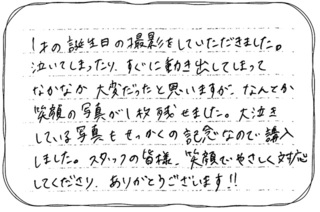 1才の誕生日の撮影をしていただきました。
泣いてしまったり、すぐに動き出してしまって
なかなか大変だったと思いますが、なんとか
笑顔の写真が1枚残せました。大泣き
している写真もせっかくの記念なので購入
しました。スタッフの皆様、笑顔でやさしく対応
してくださり、ありがとうございます!!